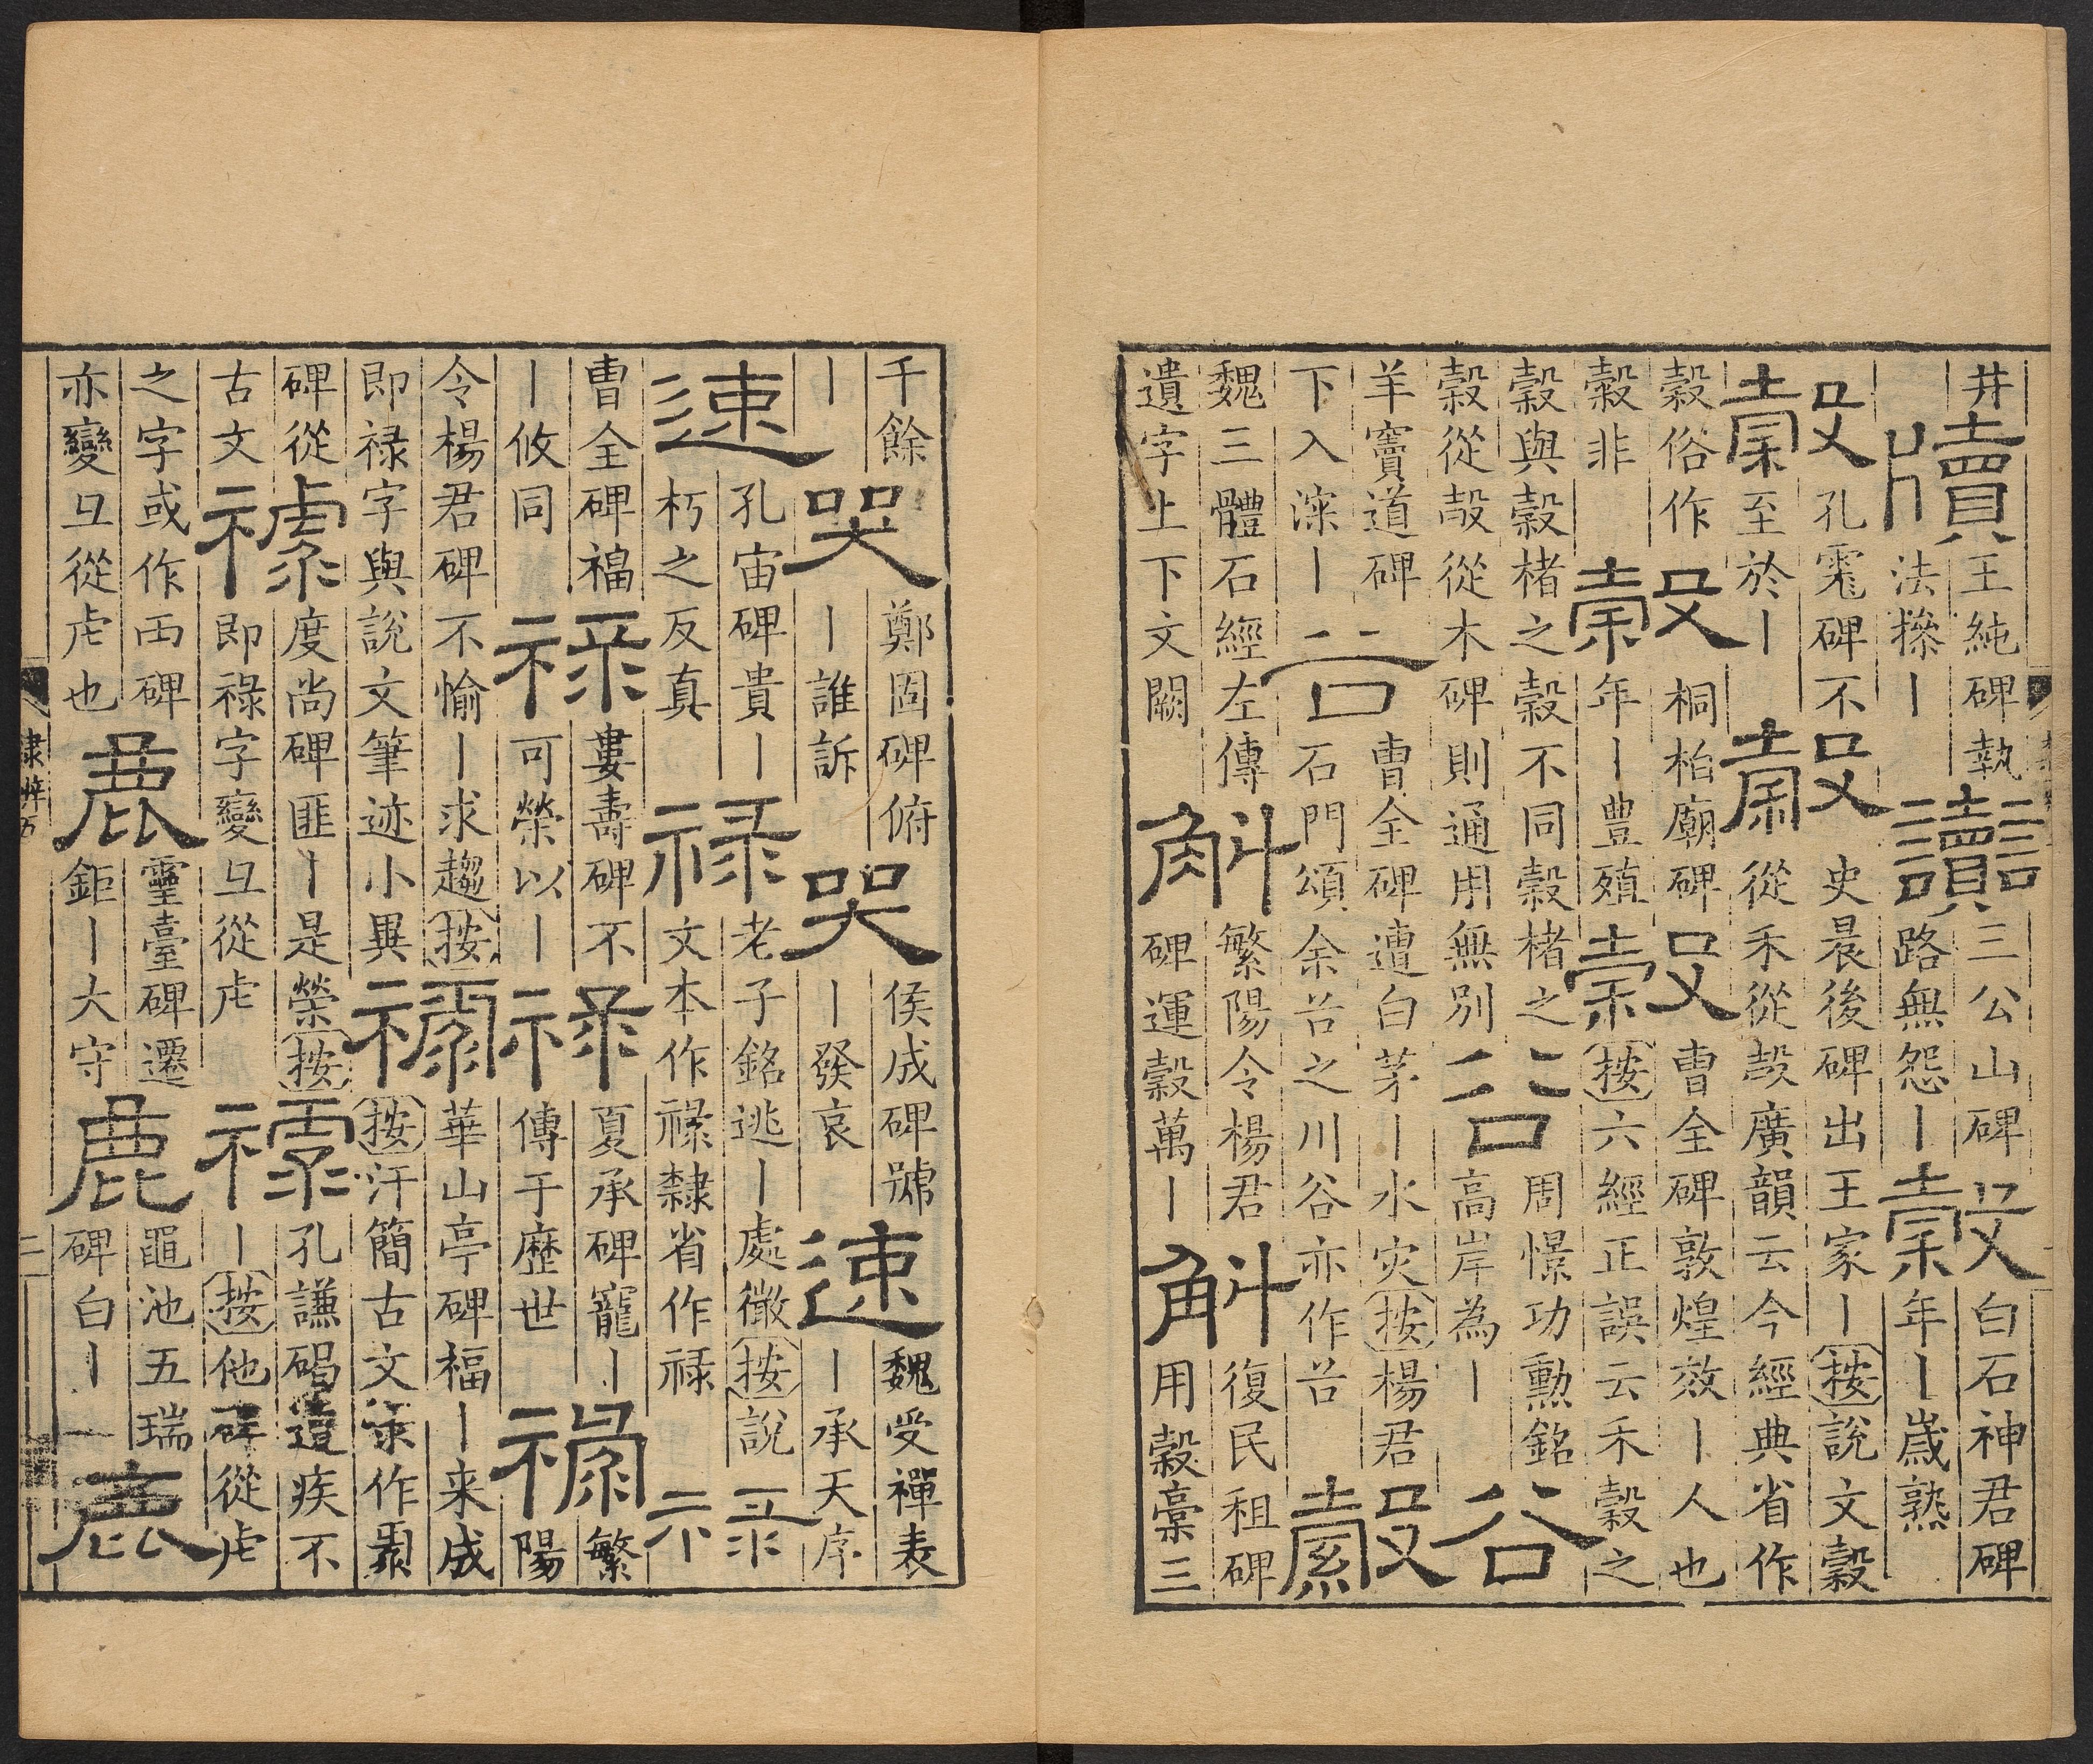 井
牘
王純碑執
法㩒丨
讟
三公山碑
路無怨丨
穀
白石神君碑
年丨歲熟
穀
孔宙碑不
至於丨
穀
史晨後碑出王家丨按說文穀
從禾從㱿廣韻云今經典省作
榖俗作
糓非
穀
桐柏廟碑
年丨豐殖
穀
曹全碑敦煌效丨人也
按六經正誤云禾穀之
穀與榖楮之榖不同榖楮之
榖從㱿從木碑則通用無別
谷
周憬功勳銘
高岸為丨
谷
羊竇道碑
下入㴱丨
谷
曹全碑遭白茅丨水灾按楊君
石門頌余谷之川谷亦作谷
魏三體石經左傳
遺字上下文闕
斛
繁陽令楊君
碑運穀萬丨
斛
復民租碑
用穀稾三
千餘
丨
哭
鄭固碑俯
丨誰訴
哭
侯成碑號
丨發哀
速
魏受禪表
丨承天序
速
孔宙碑貴丨
朽之反真
禄
老子銘逃丨處微按說
文本作祿隸省作禄
禄
曹全碑福
丨攸同
禄
婁壽碑不
可榮以丨
禄
夏承碑寵丨
傳于歷世
禄
繁
陽
令楊君碑不愉丨求趨按
即禄字與說文筆迹小異
禄
華山亭碑福丨来成
按汗簡古文作
碑從
古文
禄
度尚碑匪丨是榮按
即祿字變彑從虍
禄
孔謙碣遭疾不
丨按他碑從虍
之字或作襾碑
亦變彑從虍也
鹿
靈臺碑遷
鉅丨大守
鹿
黽池五瑞
碑白丨
鹿
隸辨五
二